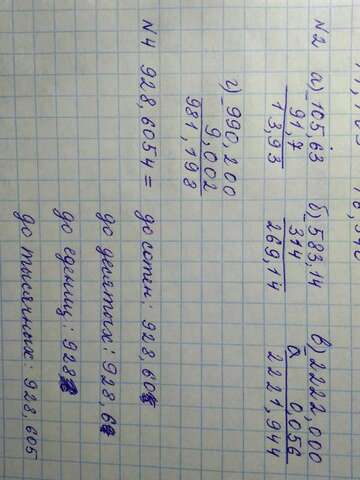 N2 а) 105,63 б) 583,14 в) 2222,000
91,7 314 0,056
13,93 269,14 2221,944
г) 990,200
9,002
981,198
N4 928,6054 = до сотен: 928,60
до десятых: 928,6
до единиц: 928
до тысячных: 928,605